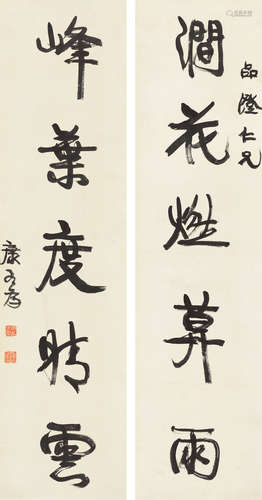 品澄仁兄
澗花燃莫雨
峰葉度晴雲
康有為